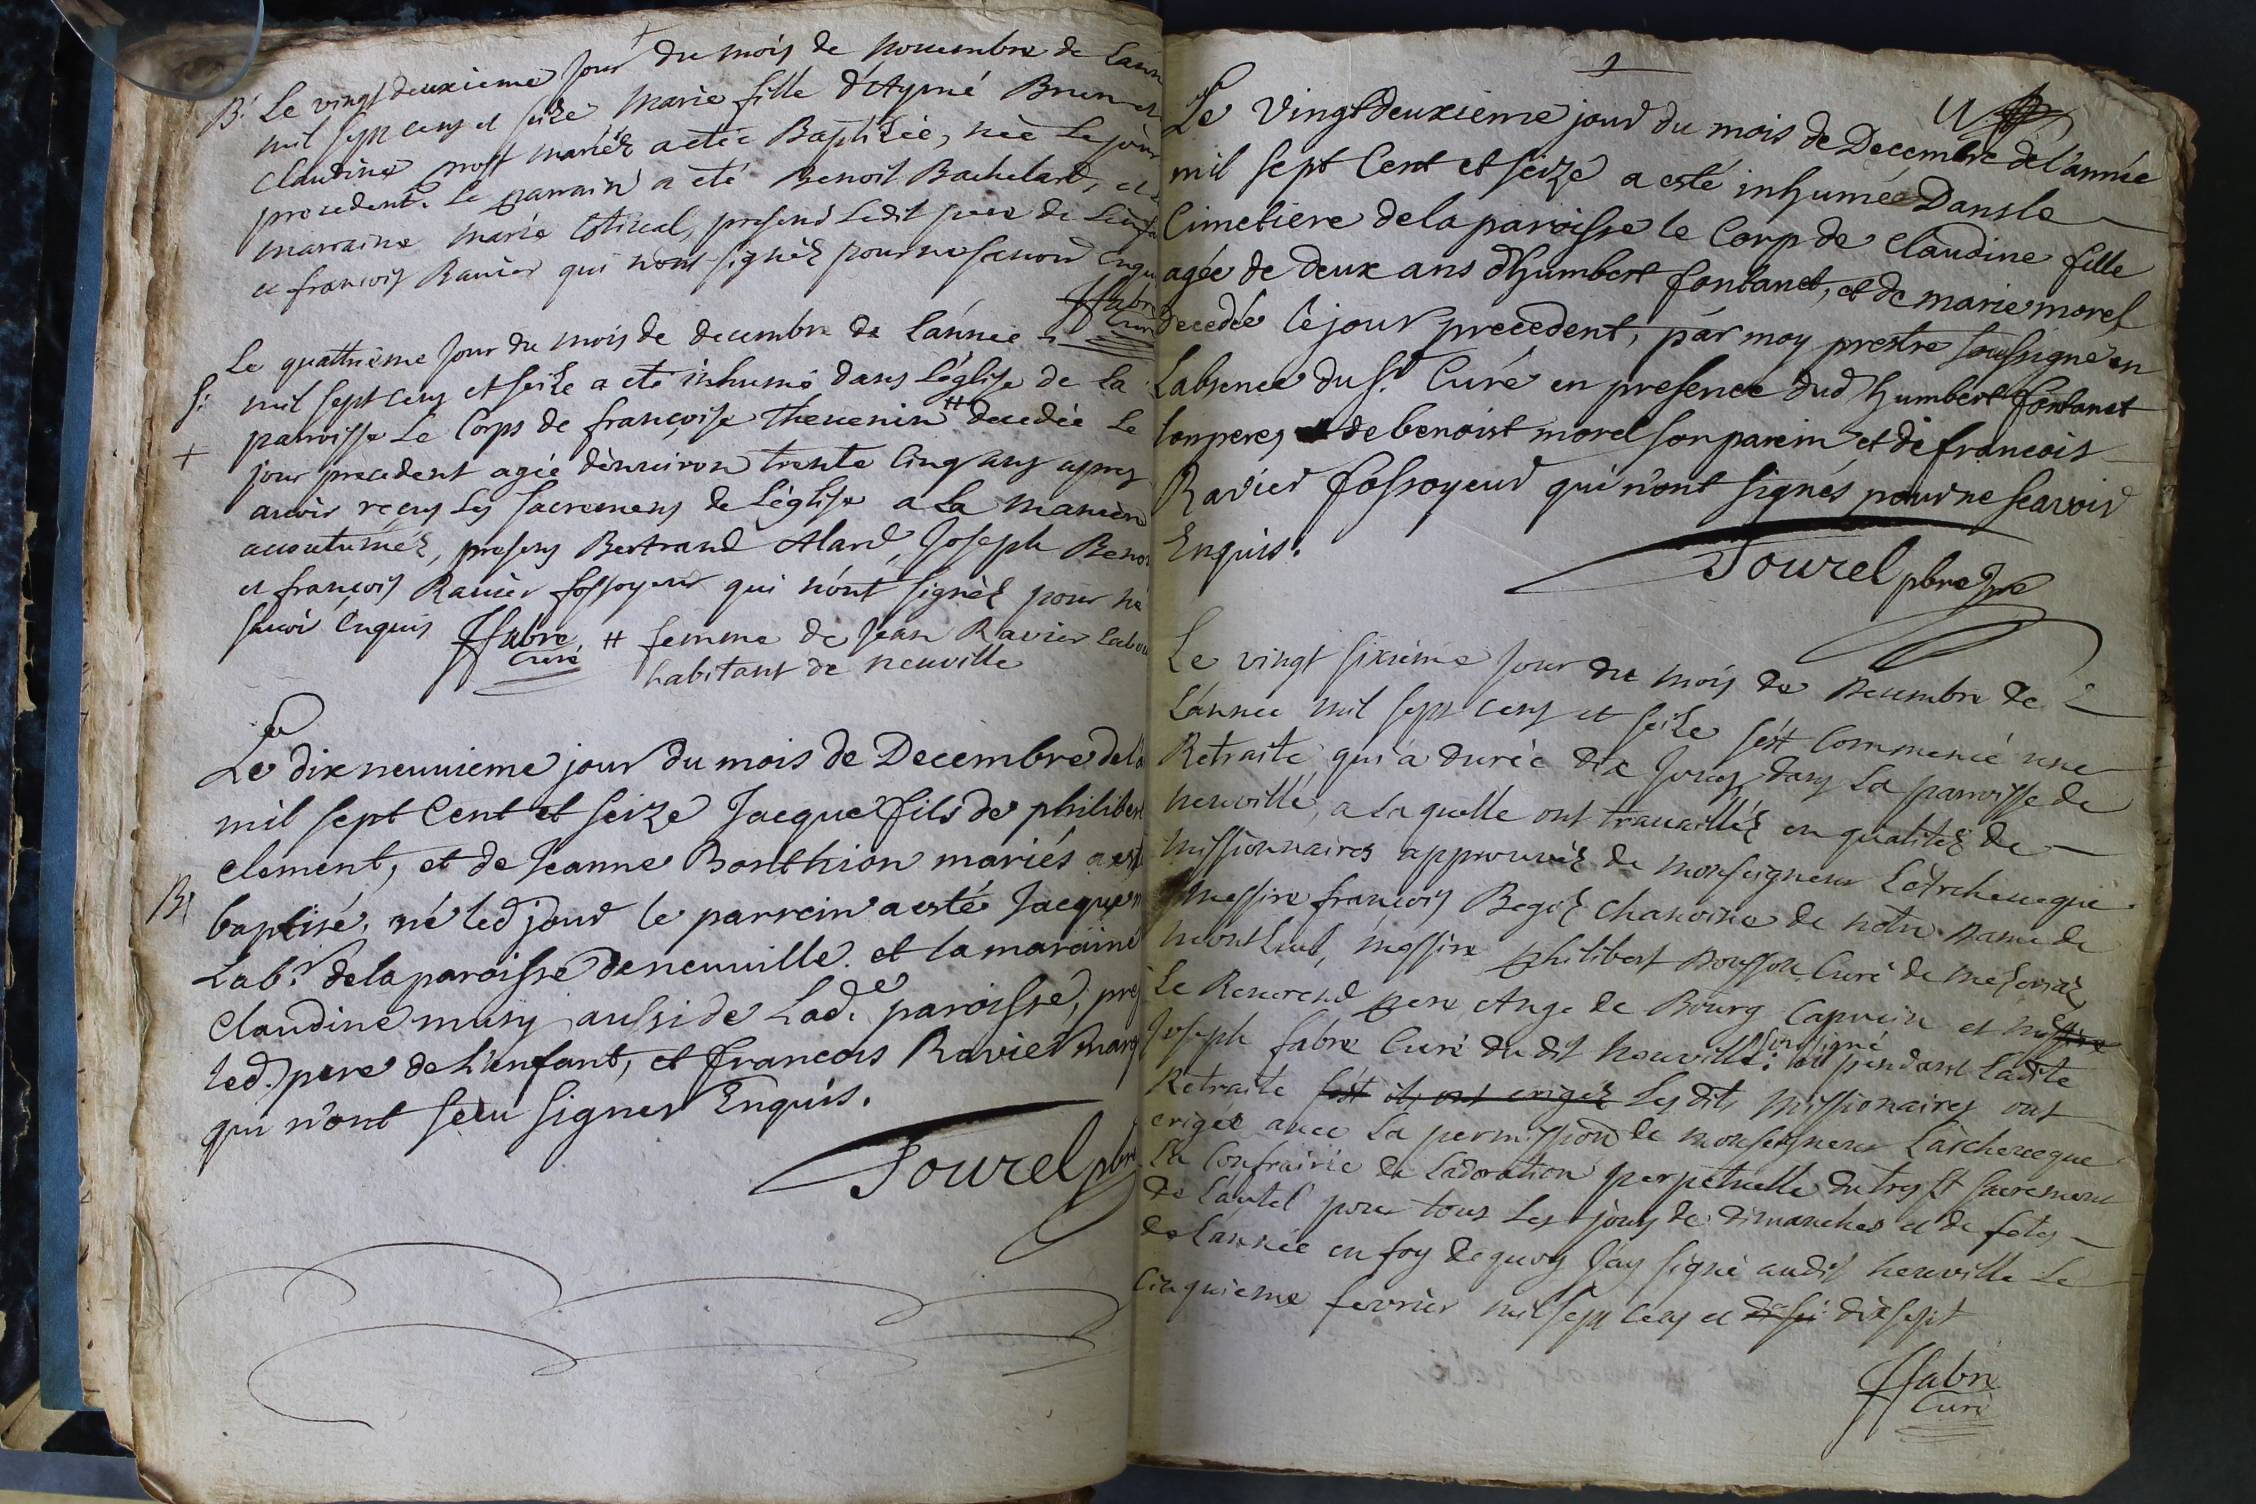 B. Le vingt deuxieme jour du mois de novembre de Lann
mil sept cens et seize Marie fille d'Aymé Brun et
Claudine mariéz a eté Baptizée, née Le jour
precedent. Le parrain a eté Benoit Bachelard, et
marraine marie presens Ledit pere de L'enfa
et francois Ravier qui n'ont signéz pour ne scavoir Enqu
ffabre
Curé
Le quattrieme Jour du mois de decembre de L'année
S. mil sept cens et seize a eté inhumé dans L'église de La
+ parroisse Le Corps de françoise Thevenin # decedée Le
jour precedent agée d'environ trente Cinq ans apres
avoir reçus Les sacremens de L'église a La maniere
accoutuméz, presens Bertrand Alard, Joseph Beno
et françois Ravier fossoyeur qui n'ont signéz pour ne
scavoir Enquis ffabre Curé # femme de Jean Ravier Labou
habitant de neuville
Le dix neuvieme jour du mois de Decembre de l'a
mil sept Cent et seize Jacque fils de philibert
Clement, et de Jeanne Bonthion mariés a esté
B. baptisé, né led jour le parrein a esté Jacque
Labr. de la paroisse de neuville. et la maraine
Claudine musy aussi de Lad.e paroisse, pre
led. pere de L'enfant, et francois Ravier marg
qui n'ont sceu signer Enquis.
Tourel pbre
1
11
Le Vingtdeuxieme jour du mois de Decembre de l'année
mil sept Cent et seize a esté inhumée Dans le
Cimetiere de la paroisse le Corp de Claudine fille
agée de deux ans d'humbert fontanet, et de marie morel
decedée le jour precedent, par moy prestre soussigné en
Labsence du Sr. Curé en presence dud humbert fontanet
son pere, de benoist morel son parein et de francois
Ravier fossoyeur qui n'ont signés pour ne scavoir
Enquis.
Tourel pbre
Le vingt sixieme Jour du mois de Decembre de
L'annee mil sept cens et seize s'est Commencé une
Retraite, qui a durée dix Jours dans La parroisse de
neuville, a Laquelle ont travailléz en qualitéz de
missionnaires approuvéz de monseigneur L'Archeveque
messire francois Begoz chanoine de notre Dame de
montluel, messire philibert Bousson Curé de meseriaz
Le Reverend pere Ange de Bourg Capucin et messire
Joseph fabre Curé du dit neuville soussigné: et pendant Ladite
Retraite s'est ils ont erigéz Les dits missionaires ont
erigée avec La permission de monseigneur L'archeveque
La Confrairie de L'adoration perpetuelle du tres st sacrement
de L'autel pour tous Les jours de dimanches et de fetes
de L'année en foy de quoy J'ay signé audit neuville Le
Cinquieme fevrier mil sept cens et dix sept
ffabre
Curé